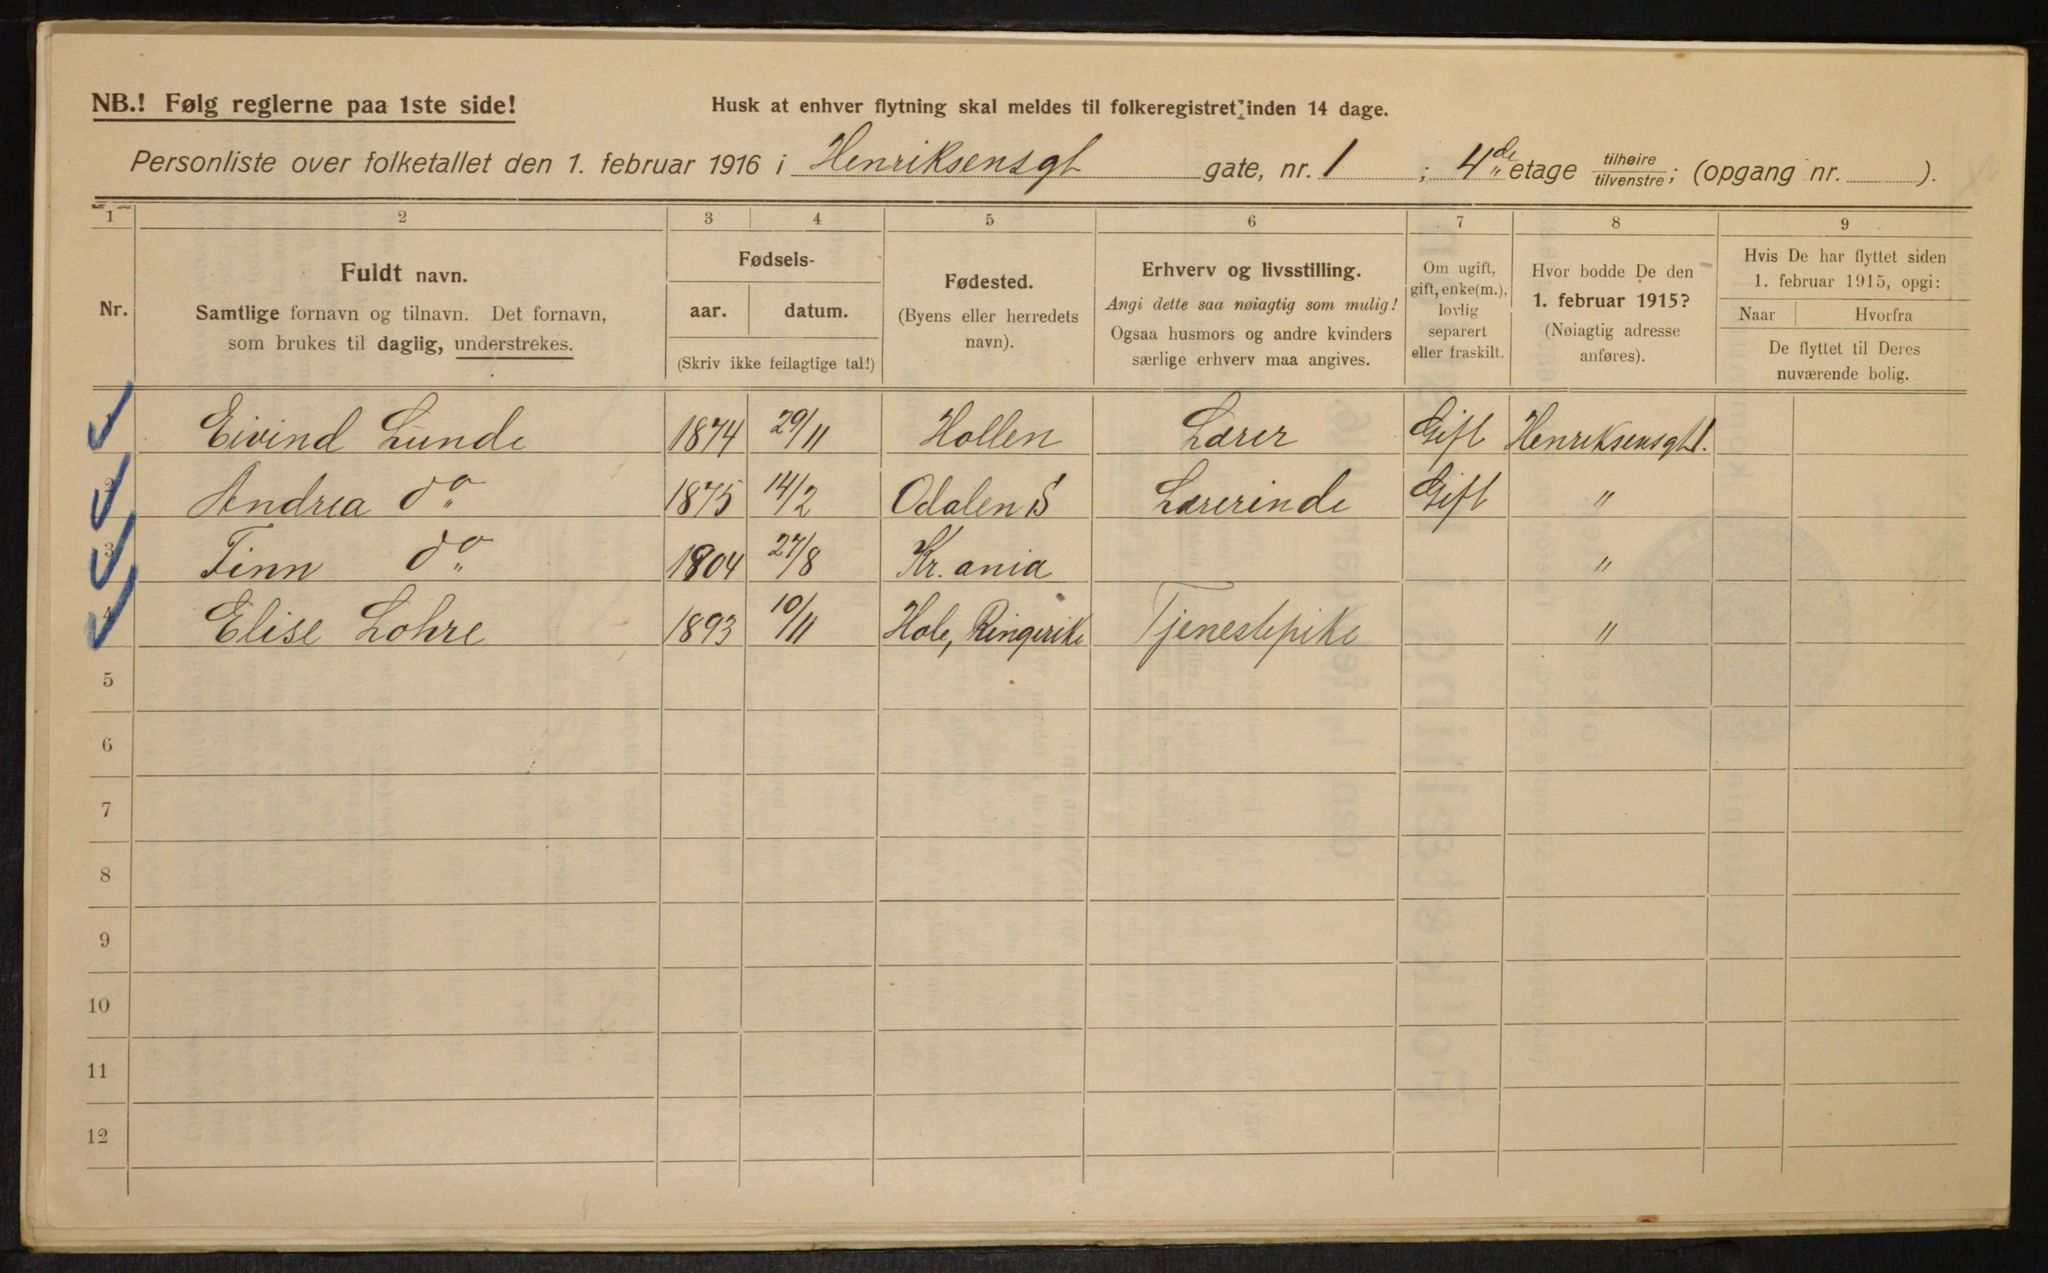 NB.! Følg reglerne paa 1ste side!
Husk at enhver flytning skal meldes til folkeregistret inden 14 dage.
Personliste over folketallet den 1. februar 1916 i Henriksensgt gate, nr. 1 ; 4de etage tilhøire tilvenstre; (opgang nr. ).
1 2 3 4 5 6 7 8 9
Nr.
Fuldt navn.
Samtlige fornavn og tilnavn. Det fornavn,
som brukes til daglig, understrekes.
Fødsels-
aar. datum.
(Skriv ikke feilagtige tal!)
Fødested.
(Byens eller herredets
navn).
Erhverv og livsstilling.
Angi dette saa nøiagtig som mulig!
Ogsaa husmors og andre kvinders
særlige erhverv maa angives.
Om ugift,
gift, enke(m.),
lovlig
separert
eller fraskilt.
Hvor bodde De den
1. februar 1915?
(Nøiagtig adresse
anføres).
Hvis De har flyttet siden
1. februar 1915, opgi:
Naar Hvorfra
De flyttet til Deres
nuværende bolig.
1 Eivind Lunde 1874 29/11 Hollen Lærer Gift Henriksensgt 1.
2 Andrea do 1875 14/2 Odalen S Lærerinde Gift "
3 Finn do 1904 27/8 Kr.ania "
4 Elise Lohre 1893 10/11 Hole, Ringerike Tjenestepike "
5
6
7
8
9
10
11
12